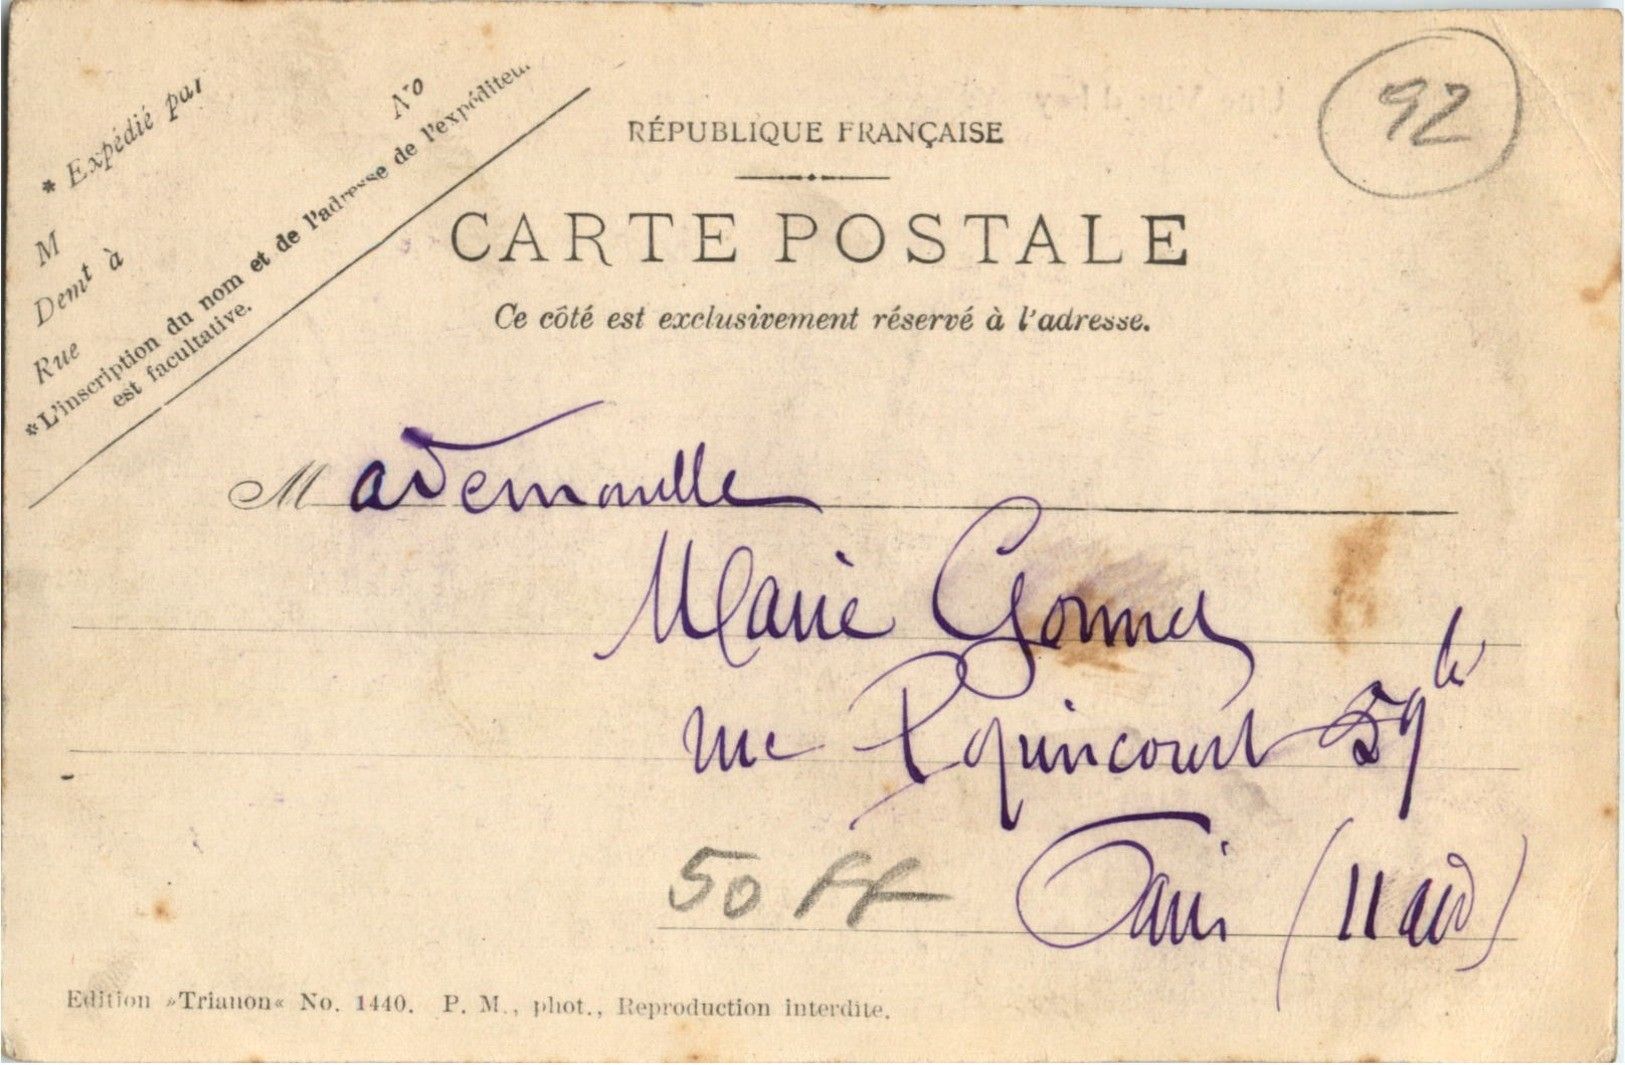 * Expédié par
M
No
Demt à
Rue
*L'inscription du nom et de l'adresse de l'expéditeur
est facultative.
92
RÉPUBLIQUE FRANÇAISE
CARTE POSTALE
Ce côté est exclusivement réservé à l'adresse.
Mademoiselle
Marie
rue Popincourt 59
Paris (11 arrd)
50 FF
Edition »Trianon« No. 1440. P. M., phot., Reproduction interdite.